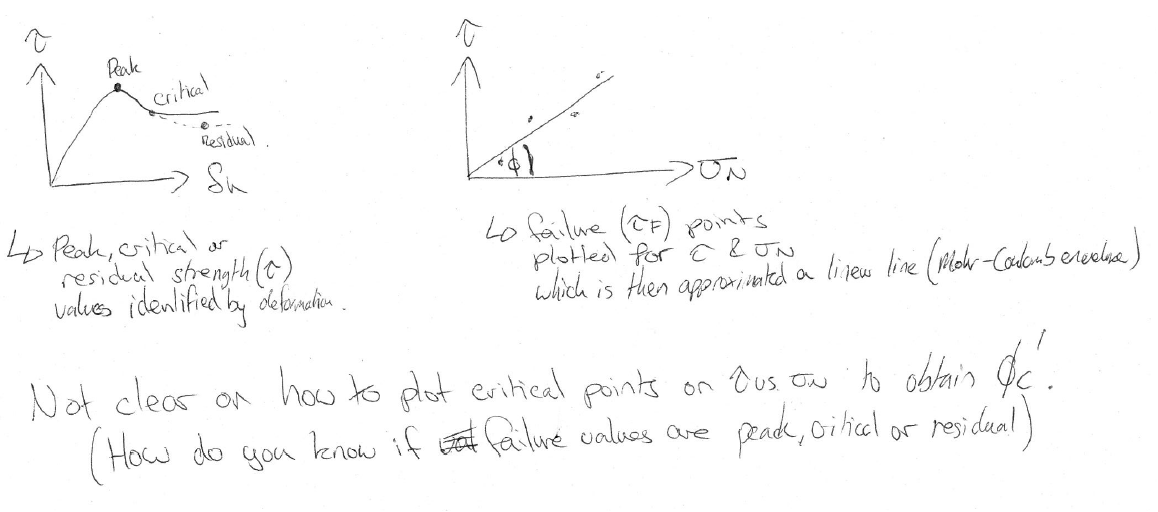 τ
Peak
critical
Residual.
δh
↳ Peak, critical or
residual strength (τ)
values identified by deformation.
τ
ϕ
σN
↳ failure (τF) points
plotted for τ & σN
which is then approximated a linear line (Mohr-Coulomb envelope)
Not clear on how to plot critical points on τ vs. σN to obtain ϕc'.
(How do you know if failure values are peak, critical or residual)